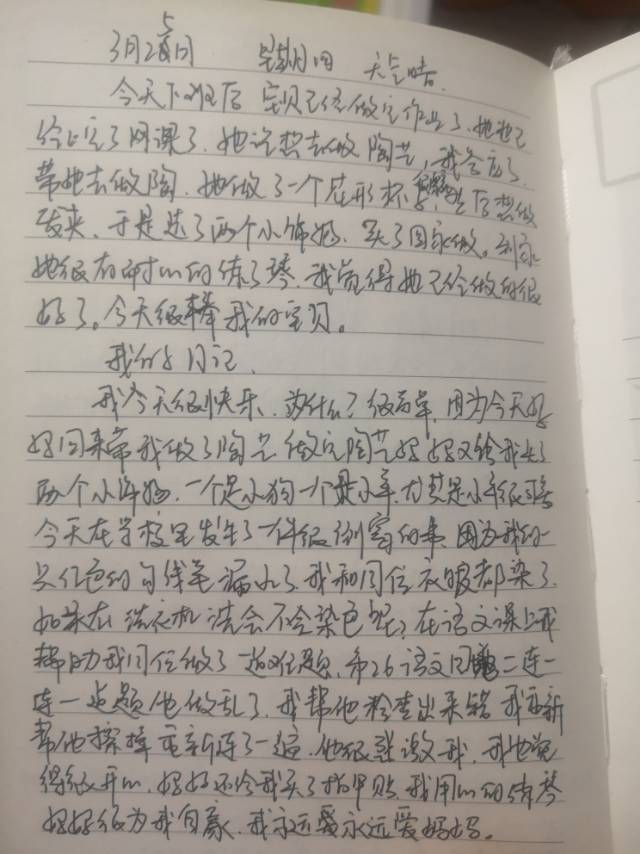 3月25日 星期四 天气晴
今天下班后 宝贝已经做完作业了、她也已
经上完了网课了、她说想去做陶艺，我答应了、
带她去做陶、她做了一个 形杯 后想做
发夹、于是选了两个小饰物、买了回家做。到家
她很有耐心的练了琴、我觉得她已经做的很
好了。今天很棒我的宝贝。
我的日记、
我今天很快乐、为什么？很简单、因为今天妈
妈回来带我做了陶艺 做完陶艺妈妈又给我买了
两个小饰物、一个是小狗一个是小羊、尤其是小羊很
今天在学校里发生了一件很倒霉的事、因为我的一
只红色的勾线笔漏水了、我和同位衣服都染了、
如果在洗衣机洗会不会染色呢？在语文课上我
帮助我同位做了一道难题、第26语文园地二连一
连一道题他做乱了、我帮他检查出来错 我重新
帮他擦掉重新连了一遍、他很感激我、我也觉
得很开心、妈妈还给我买了指甲贴、我用心的练琴
妈妈很为我自豪、我永远爱永远爱妈妈。